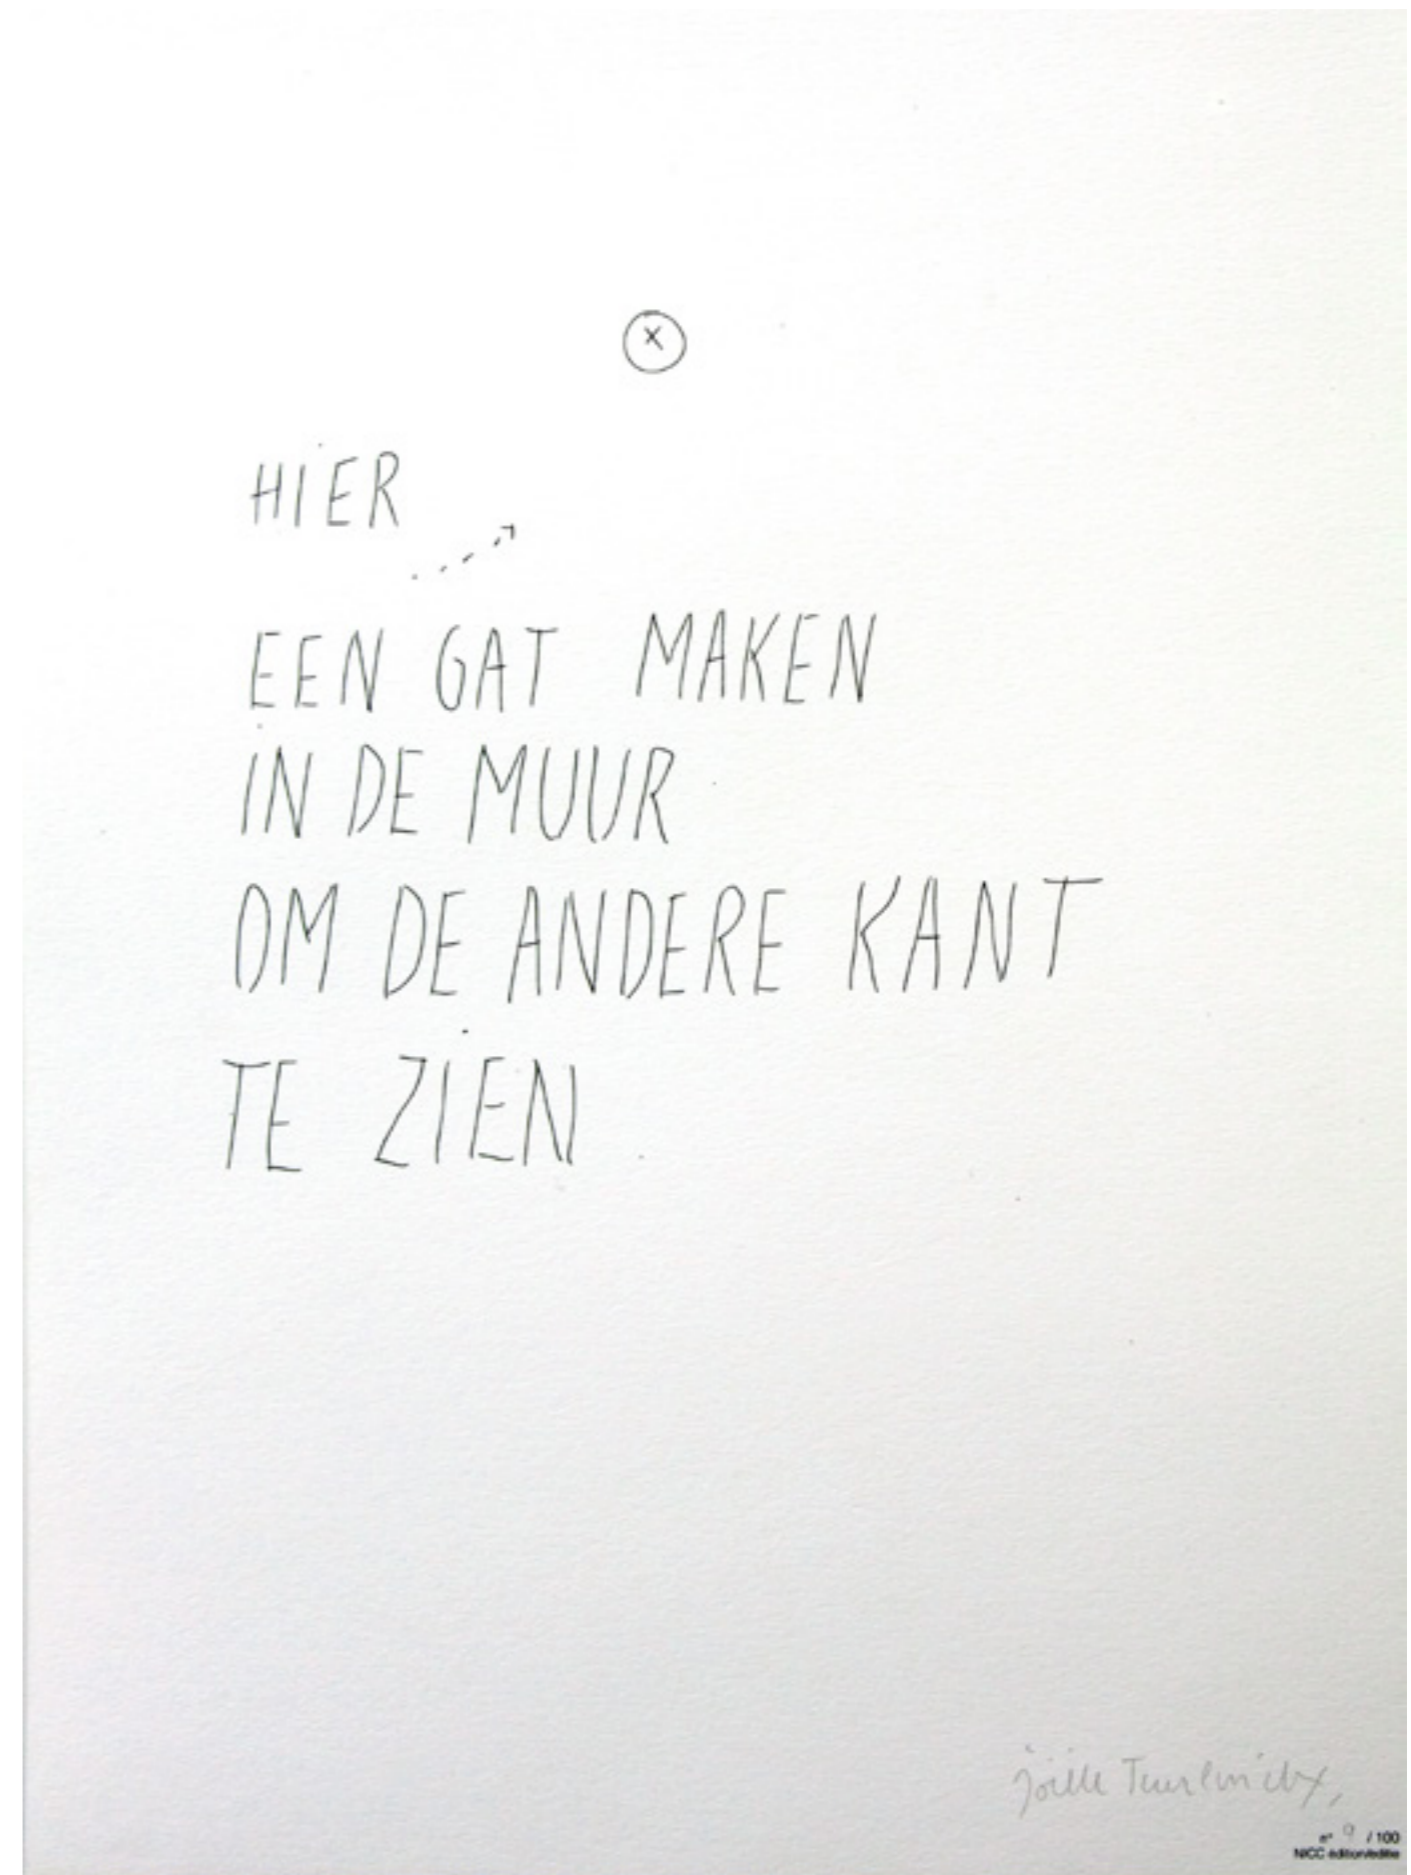 X
HIER
EEN GAT MAKEN
IN DE MUUR
OM DE ANDERE KANT
TE ZIEN
Joëlle Tuerlinckx,
n° 9 / 100
NICC édition/editie